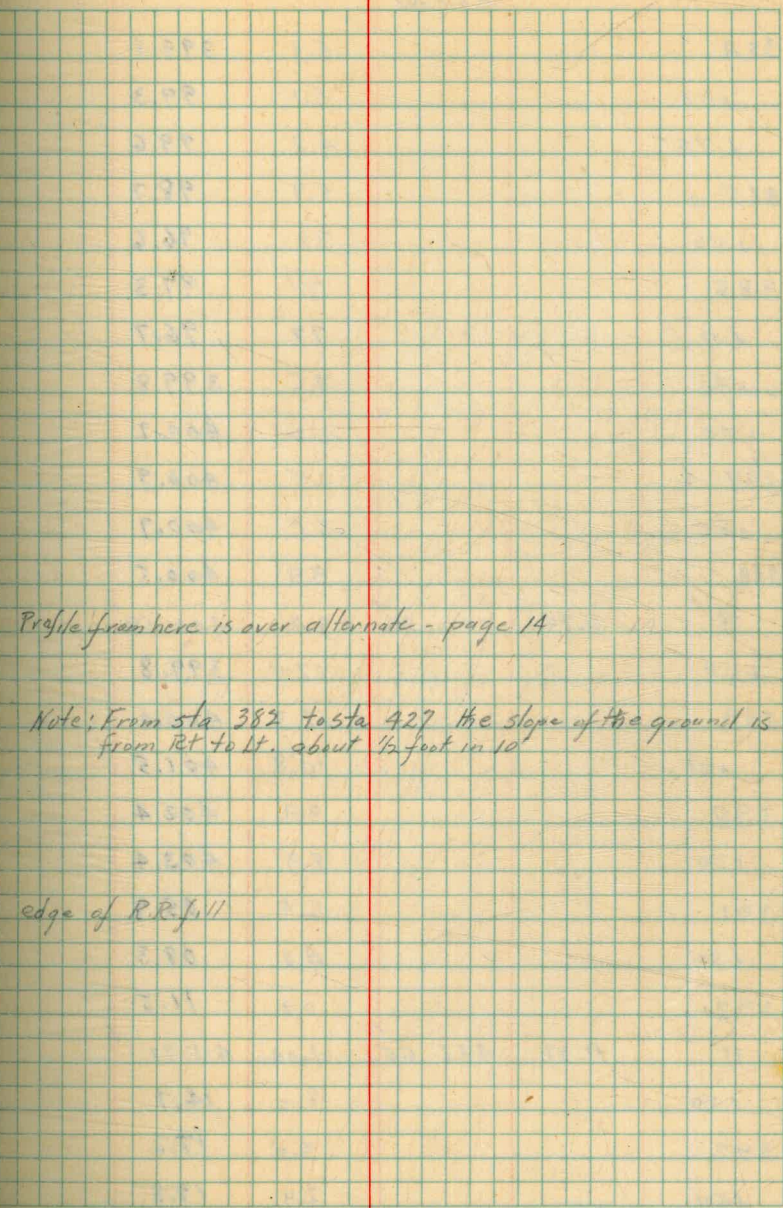 Profile from here is over alternate - page 14
Note: From sta 382 to sta 427 the slope of the ground is
from Rt to Lt. about 1/2 foot in 10'
edge of R.R. fill